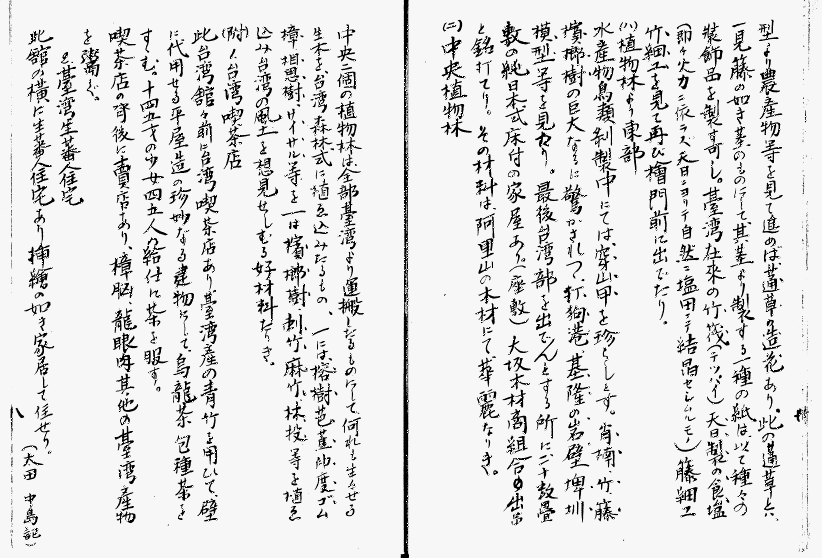 型より農産物等を見て進めば蓪草の造花あり。此の蓪草とは
一見籐の如き茎のものにして其茎より製する一種の紙は、以て種々の
装飾品を製す可し。臺湾在来の竹筏(テッパイ)天日製の食塩
(即チ火力ニ依ラズ天日ニヨリテ自然ニ塩田ニテ結晶セシムルモノ)籐細工
竹細工を見て再び檜門前に出でたり。
(ハ)植物林より東部
水産物鳥類剥製中にては穿山甲を珍らしとす。肖楠、竹、籐
檳榔樹の巨大なるに驚かされつゝ打狗港、基隆の岩壁、埤圳
模型等を見たり。最後台湾部を出でんとする所に二十数畳
敷の純日本式床付の家屋あり(座敷)大坂木材商組合の出品
と銘打てり。その材料は、阿里山の木材にて華麗なりき。
(ニ)中央植物林
中央二個の植物林は全部臺湾より運搬したるものにして、何れも生々せる
生木を台湾森林式に植ゑ込みたるもの、一には榕樹芭蕉印度ゴム
樟、相思樹、サイサル等を一は檳榔樹、刺竹、麻竹、林投等を植ゑ
込み台湾の風土を想見せしむる好材料たりき。
(附)イ台湾喫茶店
此台湾館の前に台湾喫茶店あり臺湾産の青竹を用ひて、壁
に代用せる平屋造の珍妙なる建物にして、烏龍茶、包種茶を
すゝむ。十四五才の少女四五人の給仕に茶を服す。
喫茶店の背後に賣店あり、樟脳、龍眼肉其他の臺湾産物
を鬻ぐ。
ロ臺湾生蕃人住宅
此館の横に生蕃人住宅あり挿繪の如き家居して住せり。
(太田 中島記)